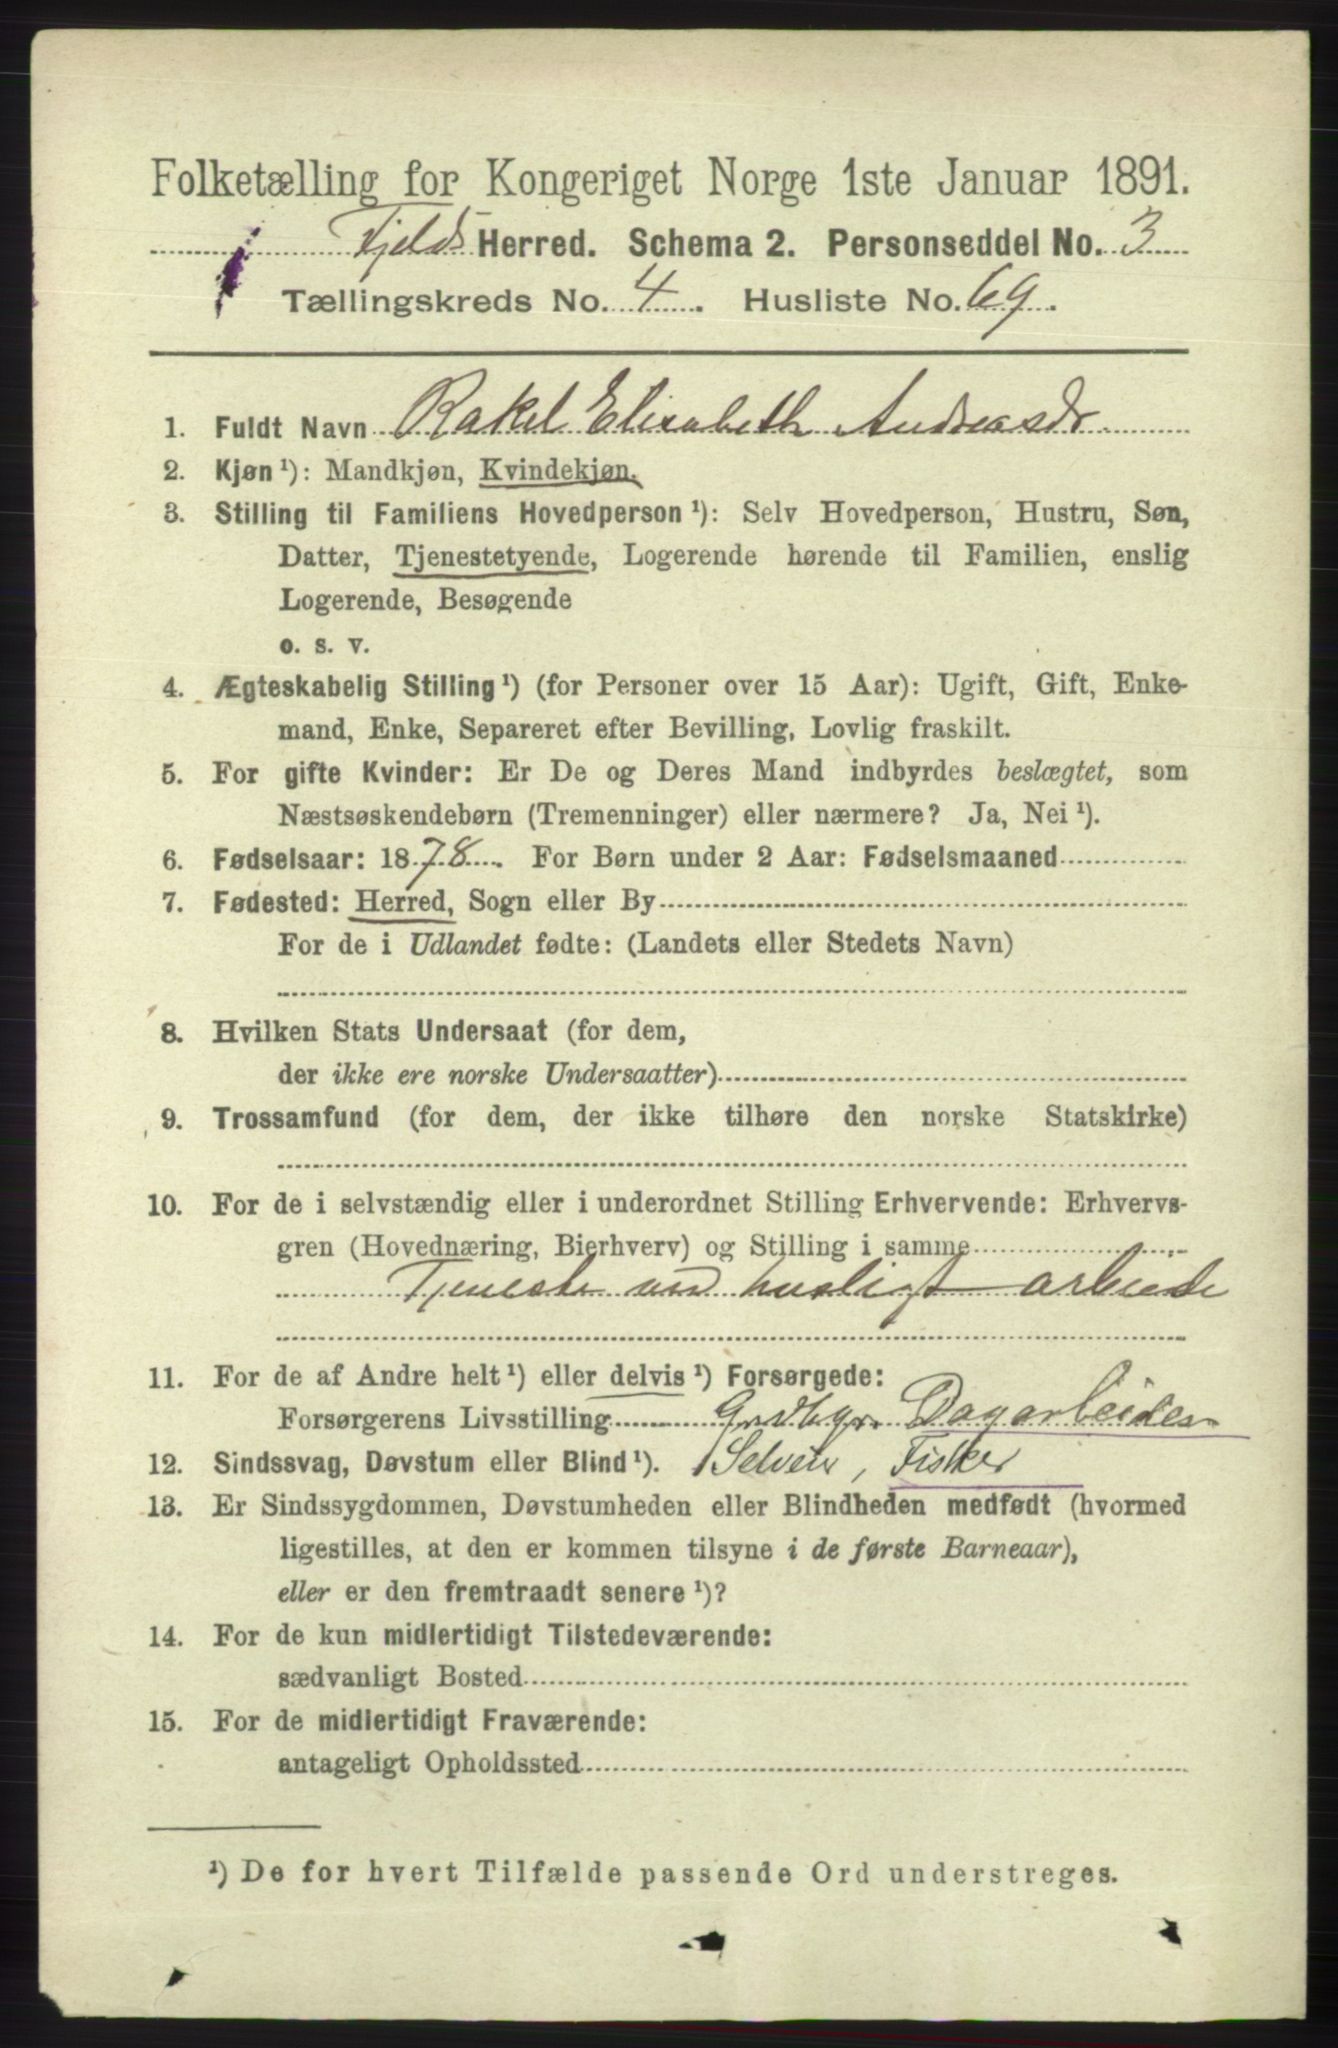 Folketælling for Kongeriget Norge 1ste Januar 1891.
Fjelds Herred. Schema 2. Personseddel No. 3
Tællingskreds No. 4. Husliste No. 69.
1. Fuldt Navn Rakel Elisabeth Andreasdr
2. Kjøn ¹): Mandkjøn, Kvindekjøn.
3. Stilling til Familiens Hovedperson ¹): Selv Hovedperson, Hustru, Søn,
Datter, Tjenestetyende, Logerende hørende til Familien, enslig
Logerende, Besøgende
o. s. v.
4. Ægteskabelig Stilling ¹) (for Personer over 15 Aar): Ugift, Gift, Enke-
mand, Enke, Separeret efter Bevilling, Lovlig fraskilt.
5. For gifte Kvinder: Er De og Deres Mand indbyrdes beslægtet, som
Næstsøskendebørn (Tremenninger) eller nærmere? Ja, Nei ¹).
6. Fødselsaar: 1878. For Børn under 2 Aar: Fødselsmaaned
7. Fødested: Herred, Sogn eller By
For de i Udlandet fødte: (Landets eller Stedets Navn)
8. Hvilken Stats Undersaat (for dem,
der ikke ere norske Undersaatter)
9. Trossamfund (for dem, der ikke tilhøre den norske Statskirke)
10. For de i selvstændig eller i underordnet Stilling Erhvervende: Erhvervs-
gren (Hovednæring, Bierhverv) og Stilling i samme
Tjeneste ved husligt arbeide
11. For de af Andre helt ¹) eller delvis ¹) Forsørgede:
Forsørgerens Livsstilling Dagarbeider
12. Sindssvag, Døvstum eller Blind ¹). Selveier, Fisker
13. Er Sindssygdommen, Døvstumheden eller Blindheden medfødt (hvormed
ligestilles, at den er kommen tilsyne i de første Barneaar),
eller er den fremtraadt senere ¹)?
14. For de kun midlertidigt Tilstedeværende:
sædvanligt Bosted
15. For de midlertidigt Fraværende:
antageligt Opholdssted
¹) De for hvert Tilfælde passende Ord understreges.